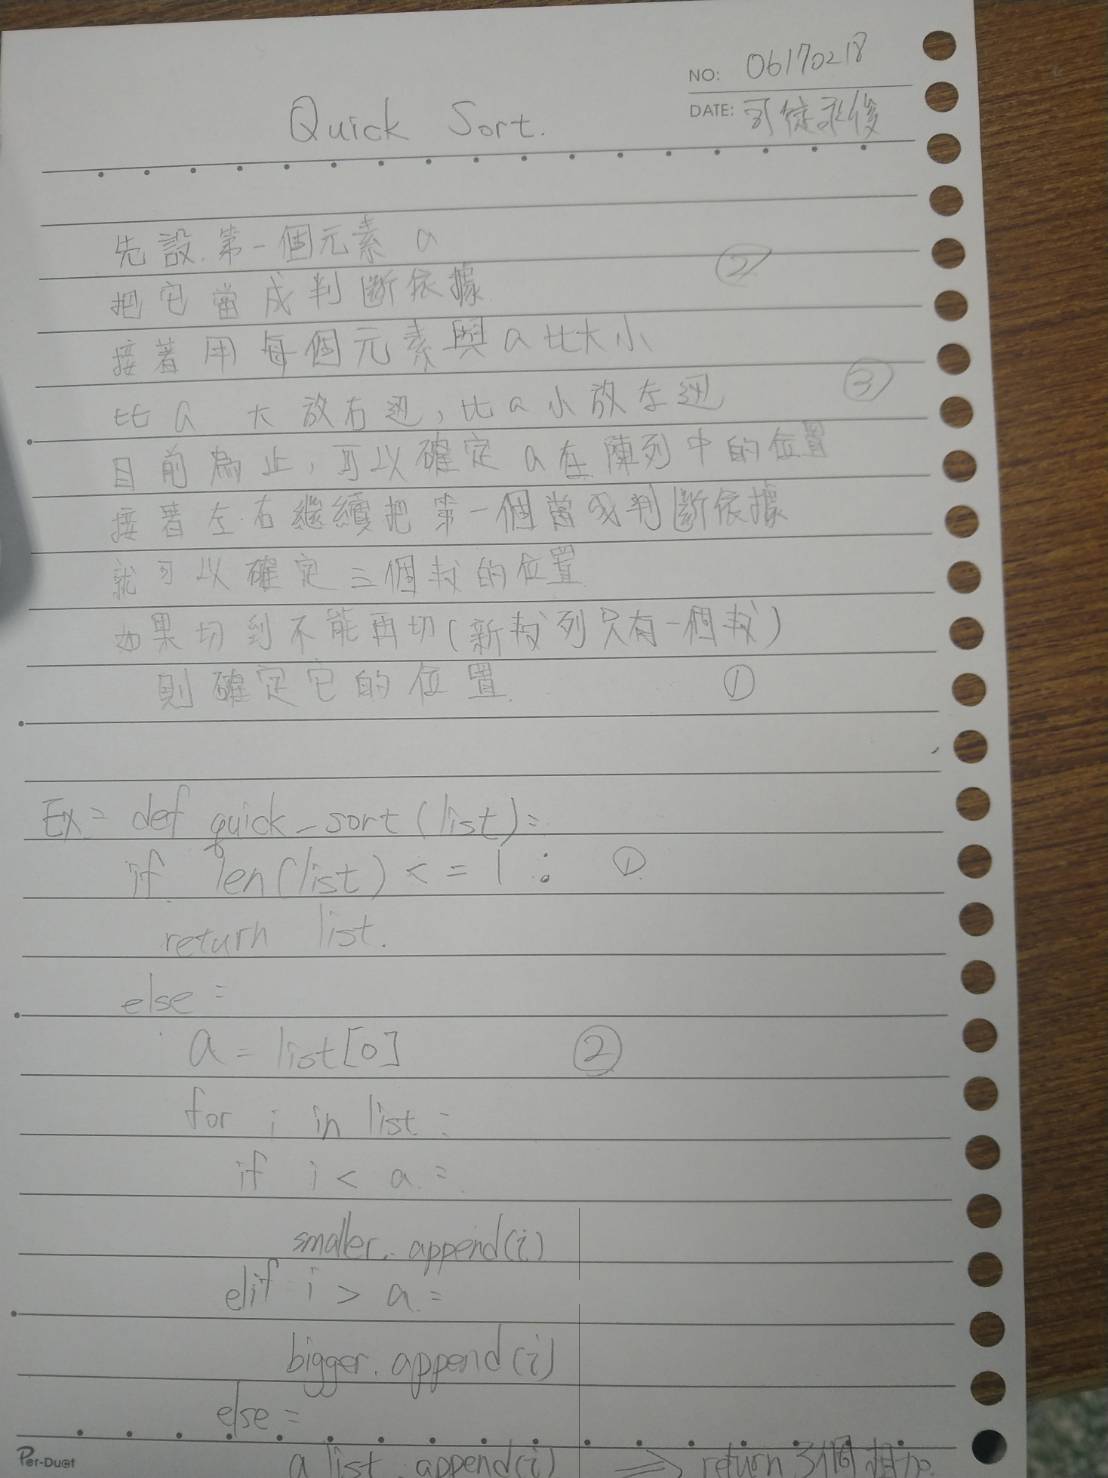 NO: 06170218
DATE: 司徒永俊
Quick Sort.
先設.第一個元素 a
把它當成判斷依據 ②
接著用每個元素與a比大小
比a 大放右邊,比a小放左邊 ③
目前為止,可以確定a在陣列中的位置
接著左右繼續把第一個當成判斷依據
就可以確定三個數的位置
如果切到不能再切(新數列只有一個數)
則確定它的位置. ①
Ex: def quick_sort(list):
if len(list) <= 1 : ①
return list.
else:
a = list[0] ②
for i in list:
if i < a:
smaller.append(i)
elif i > a:
bigger.append(i)
else:
a list.append(i) => return 3個相加
Per-Duet